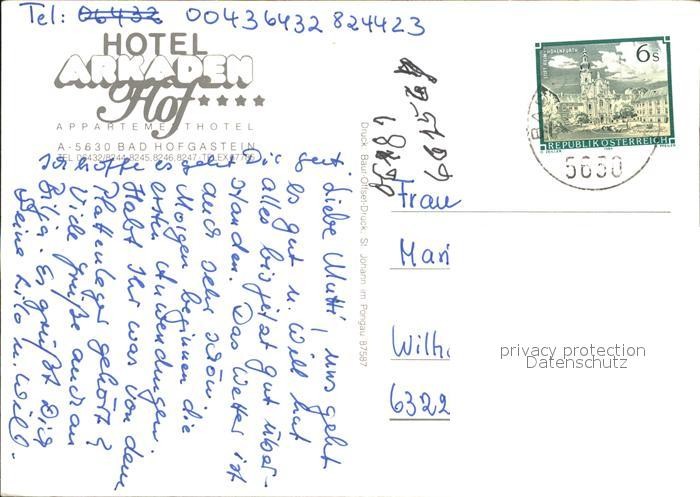 Tel: 06432 00436432 824423
HOTEL
ARKADEN
Hof ★★★★
APPARTEMENTHOTEL
A-5630 BAD HOFGASTEIN
TEL. 06432/8244, 8245, 8246, 8247, TELEX 67
Liebe Mutti, uns geht
es gut u. Willi hat
alles bis jetzt gut über-
standen. Das Wetter ist
auch sehr schön.
Morgen beginnen die
ersten Anwendungen.
Habt Ihr was von dem
Plattenleger gehört?
Viele Grüße auch an
Es grüßt Dich
Deine Lilo u. Willi.
Ich hoffe es geht Dir gut.
Druck: Baur-Offset-Druck, St. Johann im Pongau 87587
STIFT REIN-HOHENFURTH
6 S
REPUBLIK ÖSTERREICH
5630
Frau
Mari
Wilh
6322
privacy protection
Datenschutz